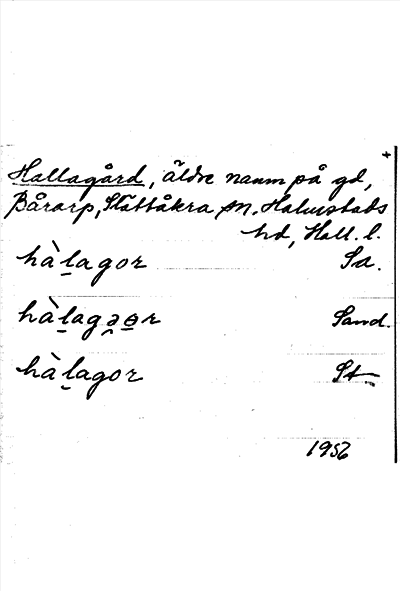 +
Hallagård, äldre namn på gd,
Bårarp, Slättåkra sn. Halmstads
hd, Hall. l.
hàḻagor Sa.
hàḻagə̯ɵ̱r Sand.
hàḻagor St
1956